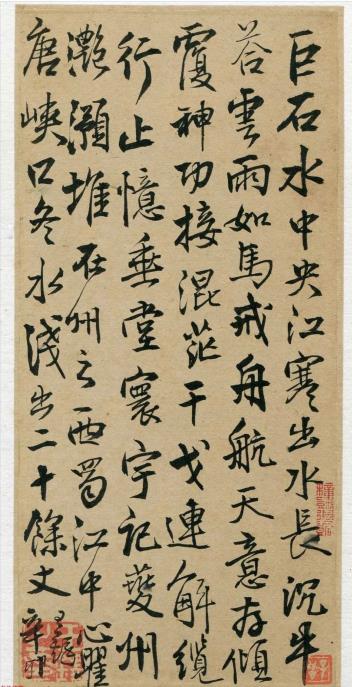 巨石水中央江寒出水長沉牛
荅雲雨如馬戒舟航天意存傾
覆神功接混茫干戈連解纜
行止憶垂堂寰宇記夔州
灧澦堆在州之西蜀江中心瞿
唐峽口冬水淺出二十餘丈
辛卯